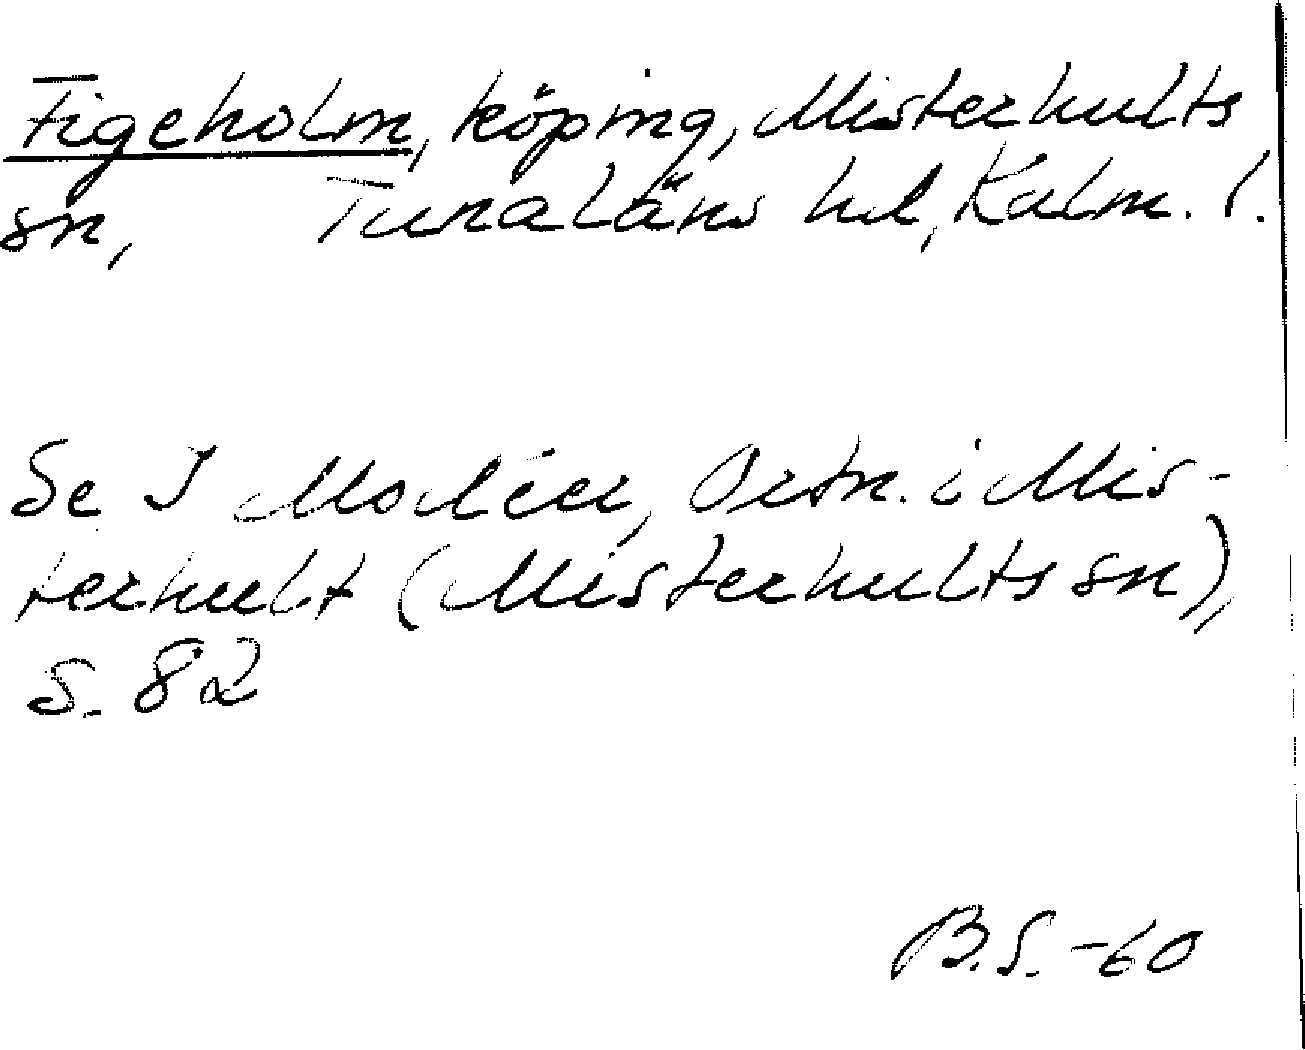 Figeholm, köping, Misterhults
sn, Tunaläns hd, Kalm. l.
Se I Modéer, Ortn. i Mis-
terhult (Misterhults sn),
s. 82
B.S. -60